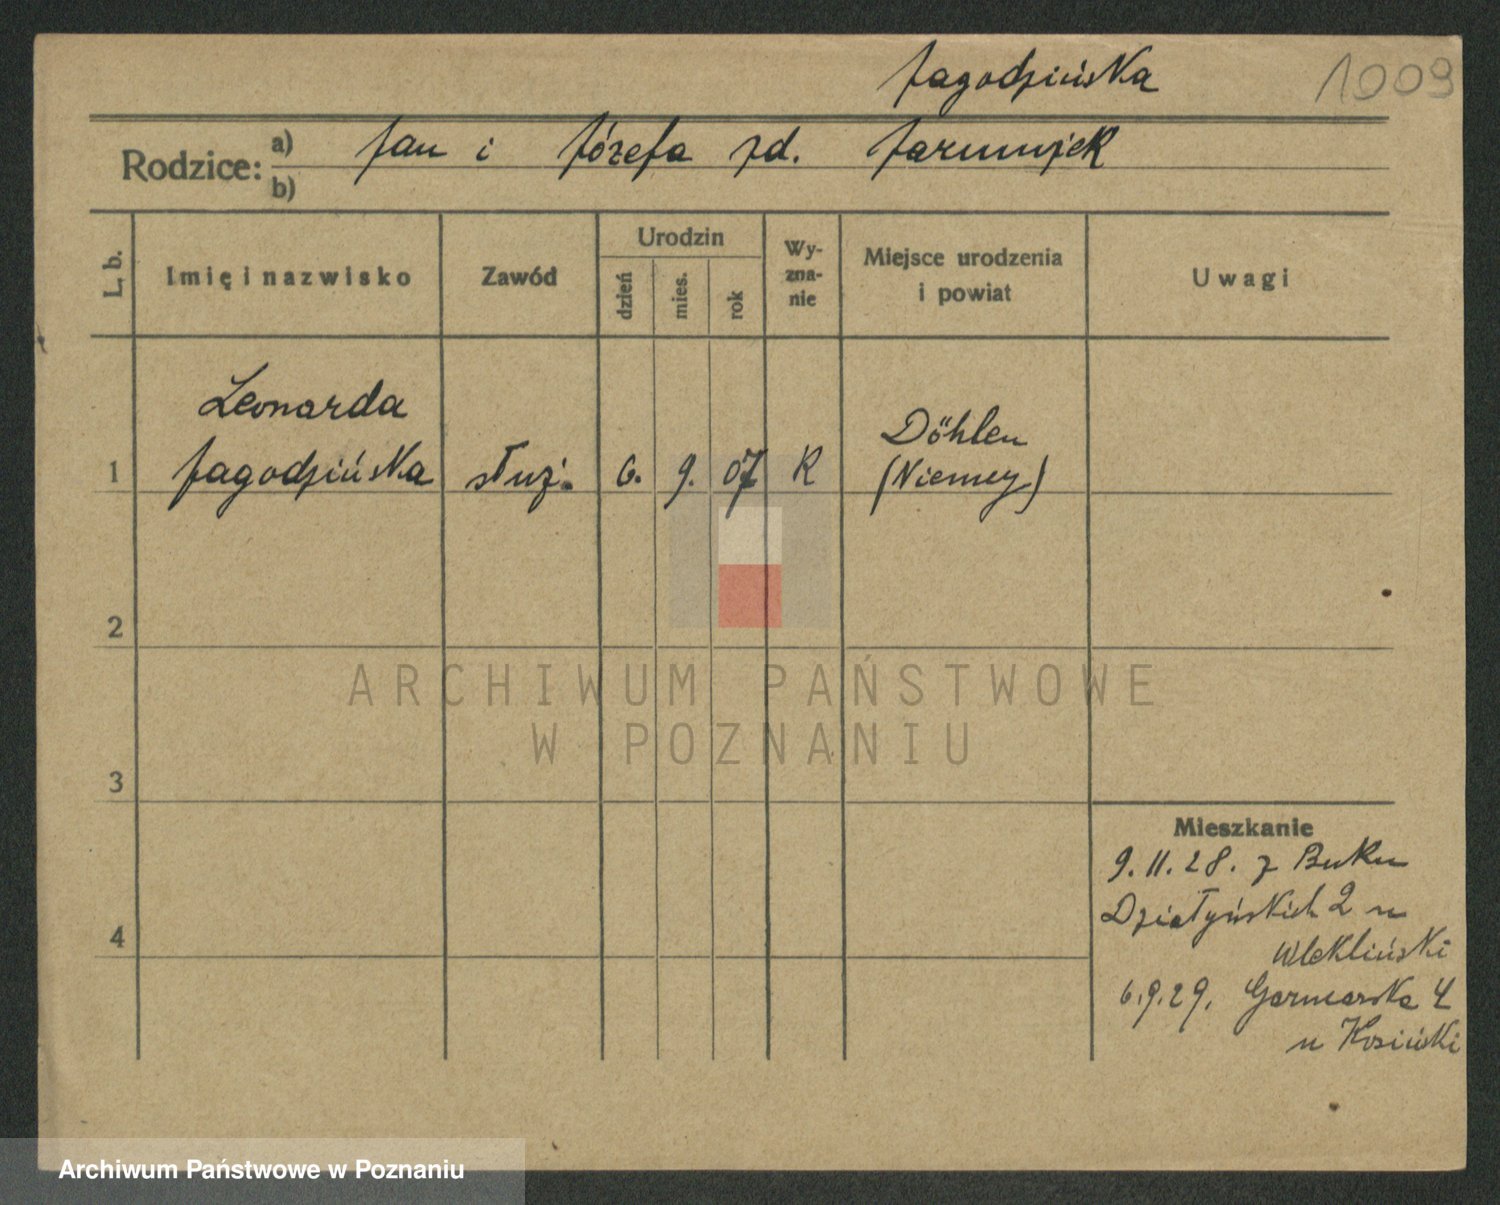 Jagodzińska
1009
Rodzice:
a) Jan i Józefa zd.
b)
L. b.
Imię i nazwisko
Zawód
Urodzin
dzień
mies.
rok
Wy-
zna-
nie
Miejsce urodzenia
i powiat
Uwagi
Leonarda
1 Jagodzińska służ. 6. 9. 07 K
Döhlen
(Niemcy)
2
3
4
Mieszkanie
9.11.28. z Buku
Działyńskich 2 u
Wlekliński
6.9.29. Garncarska 4
u Kosiński
ARCHIWUM PAŃSTWOWE
W POZNANIU
Archiwum Państwowe w Poznaniu